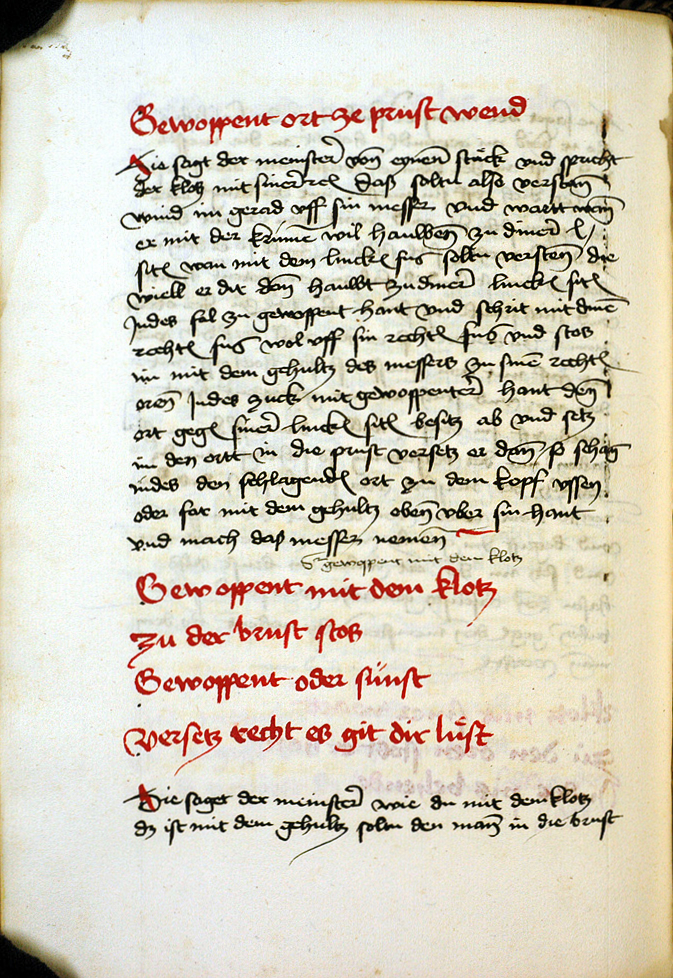 Gewoppent ort ze prust wend
Hie sagt der meinster von eynem stück vnd spricht
der klotz mit siner rel daß soltu also versten
wind im gerad vff sin messer vnd wartt wan
er mit der krumē wil hauwen zu diner l
sitē wan mit dem linckē fuß soltu versten die
wiell er dir dan hauwt zu diner linckē sitē
Indes fal zu gewoppent hant vnd schrit mit dinē
rechtē fuß wol vff sin rechtē fuß vnd stos
im mit dem gehultz des messers zu sinē rechtē
oren Indes zuck mit gewoppenter hant den
ort gegē siner linckē sitē besitz ab vnd setz
im den ortt in die prust versetz er dan so schlag
indes den schlagendē ort zu dem kopf vssen
oder far mit dem gehultz oben vber sin hant
vnd mach das messer nemen
gewoppent mit dem klotz
Gewoppent mit dem klotz
zu der brust stos
Gewoppent oder sünst
versetz recht es git dir lust
Hie saget der meinster wie du mit dem klotz
dz ist mit dem gehultz soltu den man in die brust